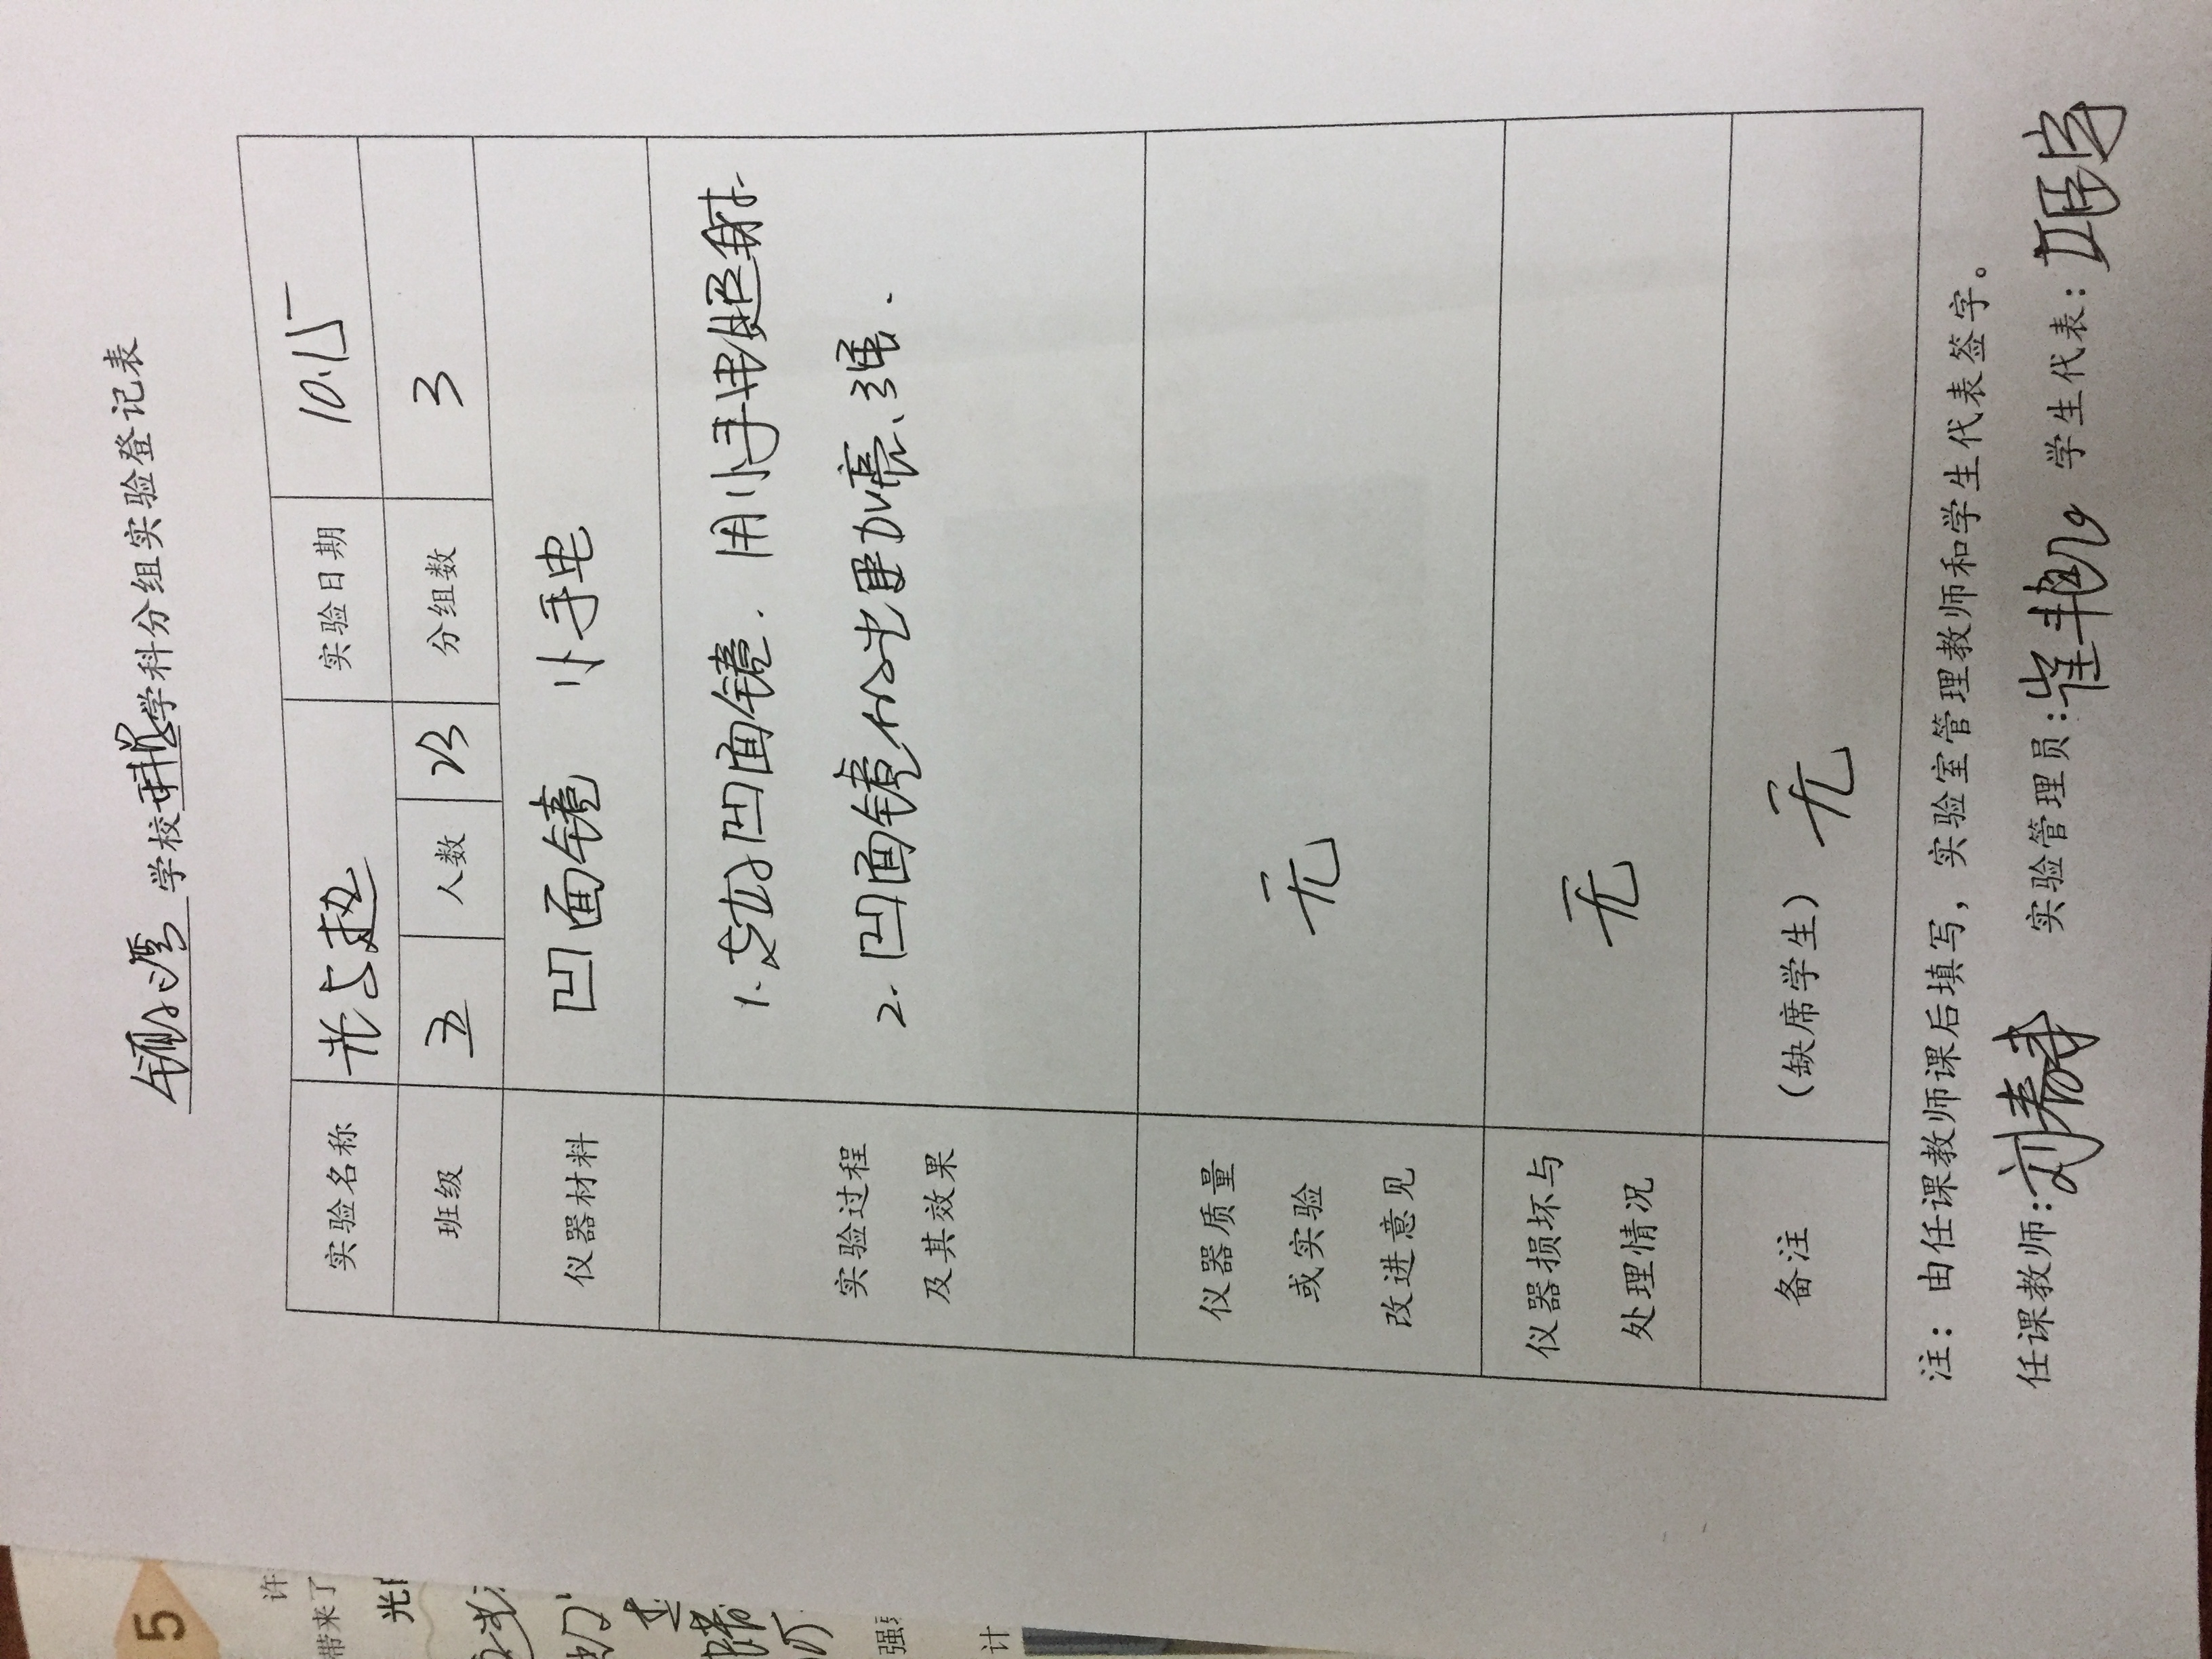 湾学校科学学科分组实验登记表
实验名称 光与热 实验日期 10.15
班级 五 人数 23 分组数 3
仪器材料 凹面镜 小手电
实验过程
及其效果
1. 凹面镜. 用小手电照射.
2. 凹面镜 更加亮、强.
仪器质量
或实验
改进意见
无
仪器损坏与
处理情况
无
备注 (缺席学生) 无
注：由任课教师课后填写，实验室管理教师和学生代表签字。
任课教师:刘春 实验管理员:崔艳 学生代表:
5
许
带来了
光
强
计